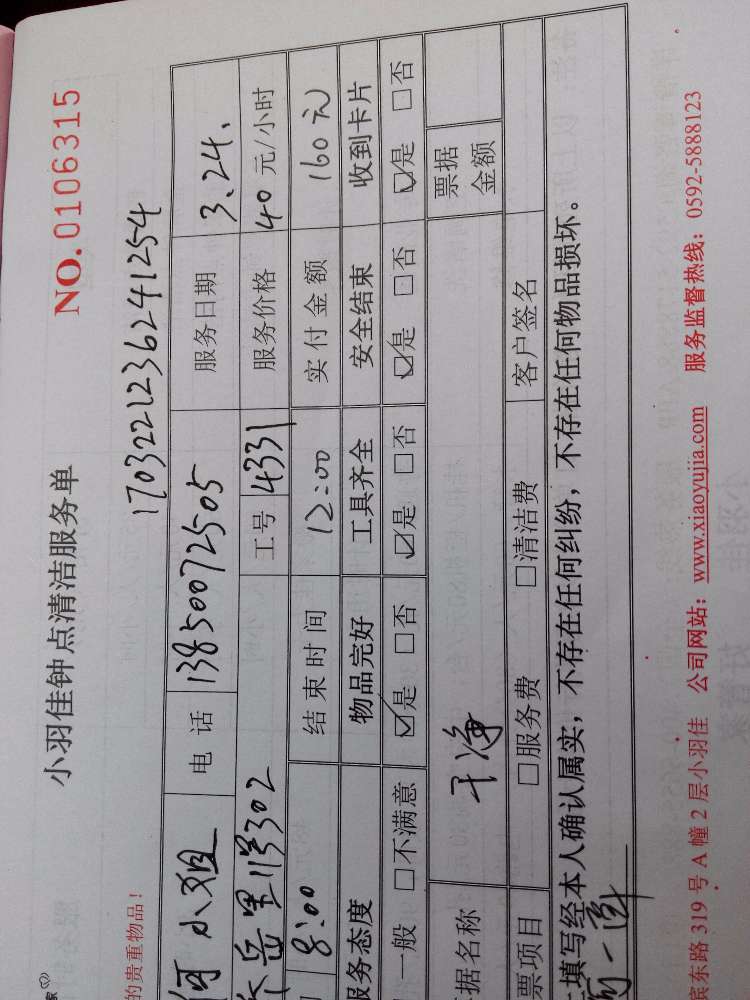 小羽佳钟点清洁服务单 NO.0106315
的贵重物品！ 170322123624125​4
何小姐 电话 13850072505 服务日期 3.24.
岳里 302 工号 4331 服务价格 40元/小时
8:00 结束时间 12:00 实付金额 160元
服务态度 物品完好 工具齐全 安全结束 收到卡片
一般 □不满意 ☑是 □否 ☑是 □否 ☑是 □否 ☑是 □否
据名称 干净 票据金额
票项目 □服务费 □清洁费 客户签名
填写经本人确认属实，不存在任何纠纷，不存在任何物品损坏。
宾东路 319 号 A 幢 2 层小羽佳 公司网站：www.xiaoyujia.com 服务监督热线：0592-5888123